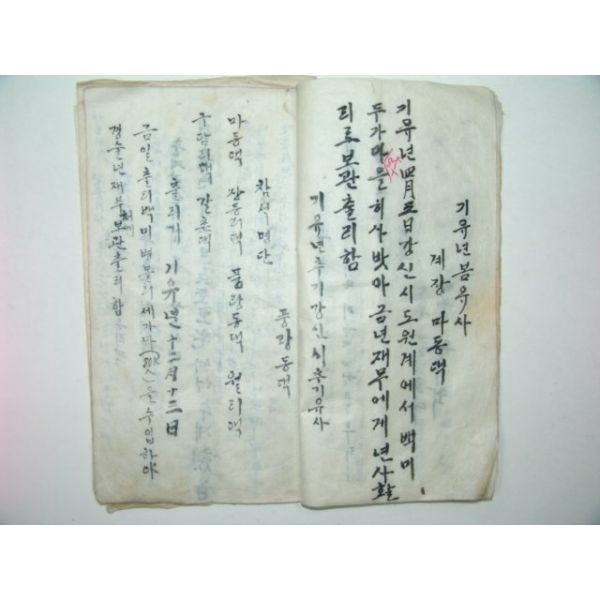 기유년봄유사
계장 마동댁
기유년四月五日강신시도원계에서백미
두가마을히사밧아금년재무에게년사활
리로보관출리함
기유년추기강신시추기유사
풍량동댁
참석명단
마동댁 장동리댁 풍량동댁 월티댁
구담리댁 갈촌댁
출리기 기유년十二月十二日
금일출리백미벼몰리세가마(叺)을수입하야
경술년재무 보관출리함